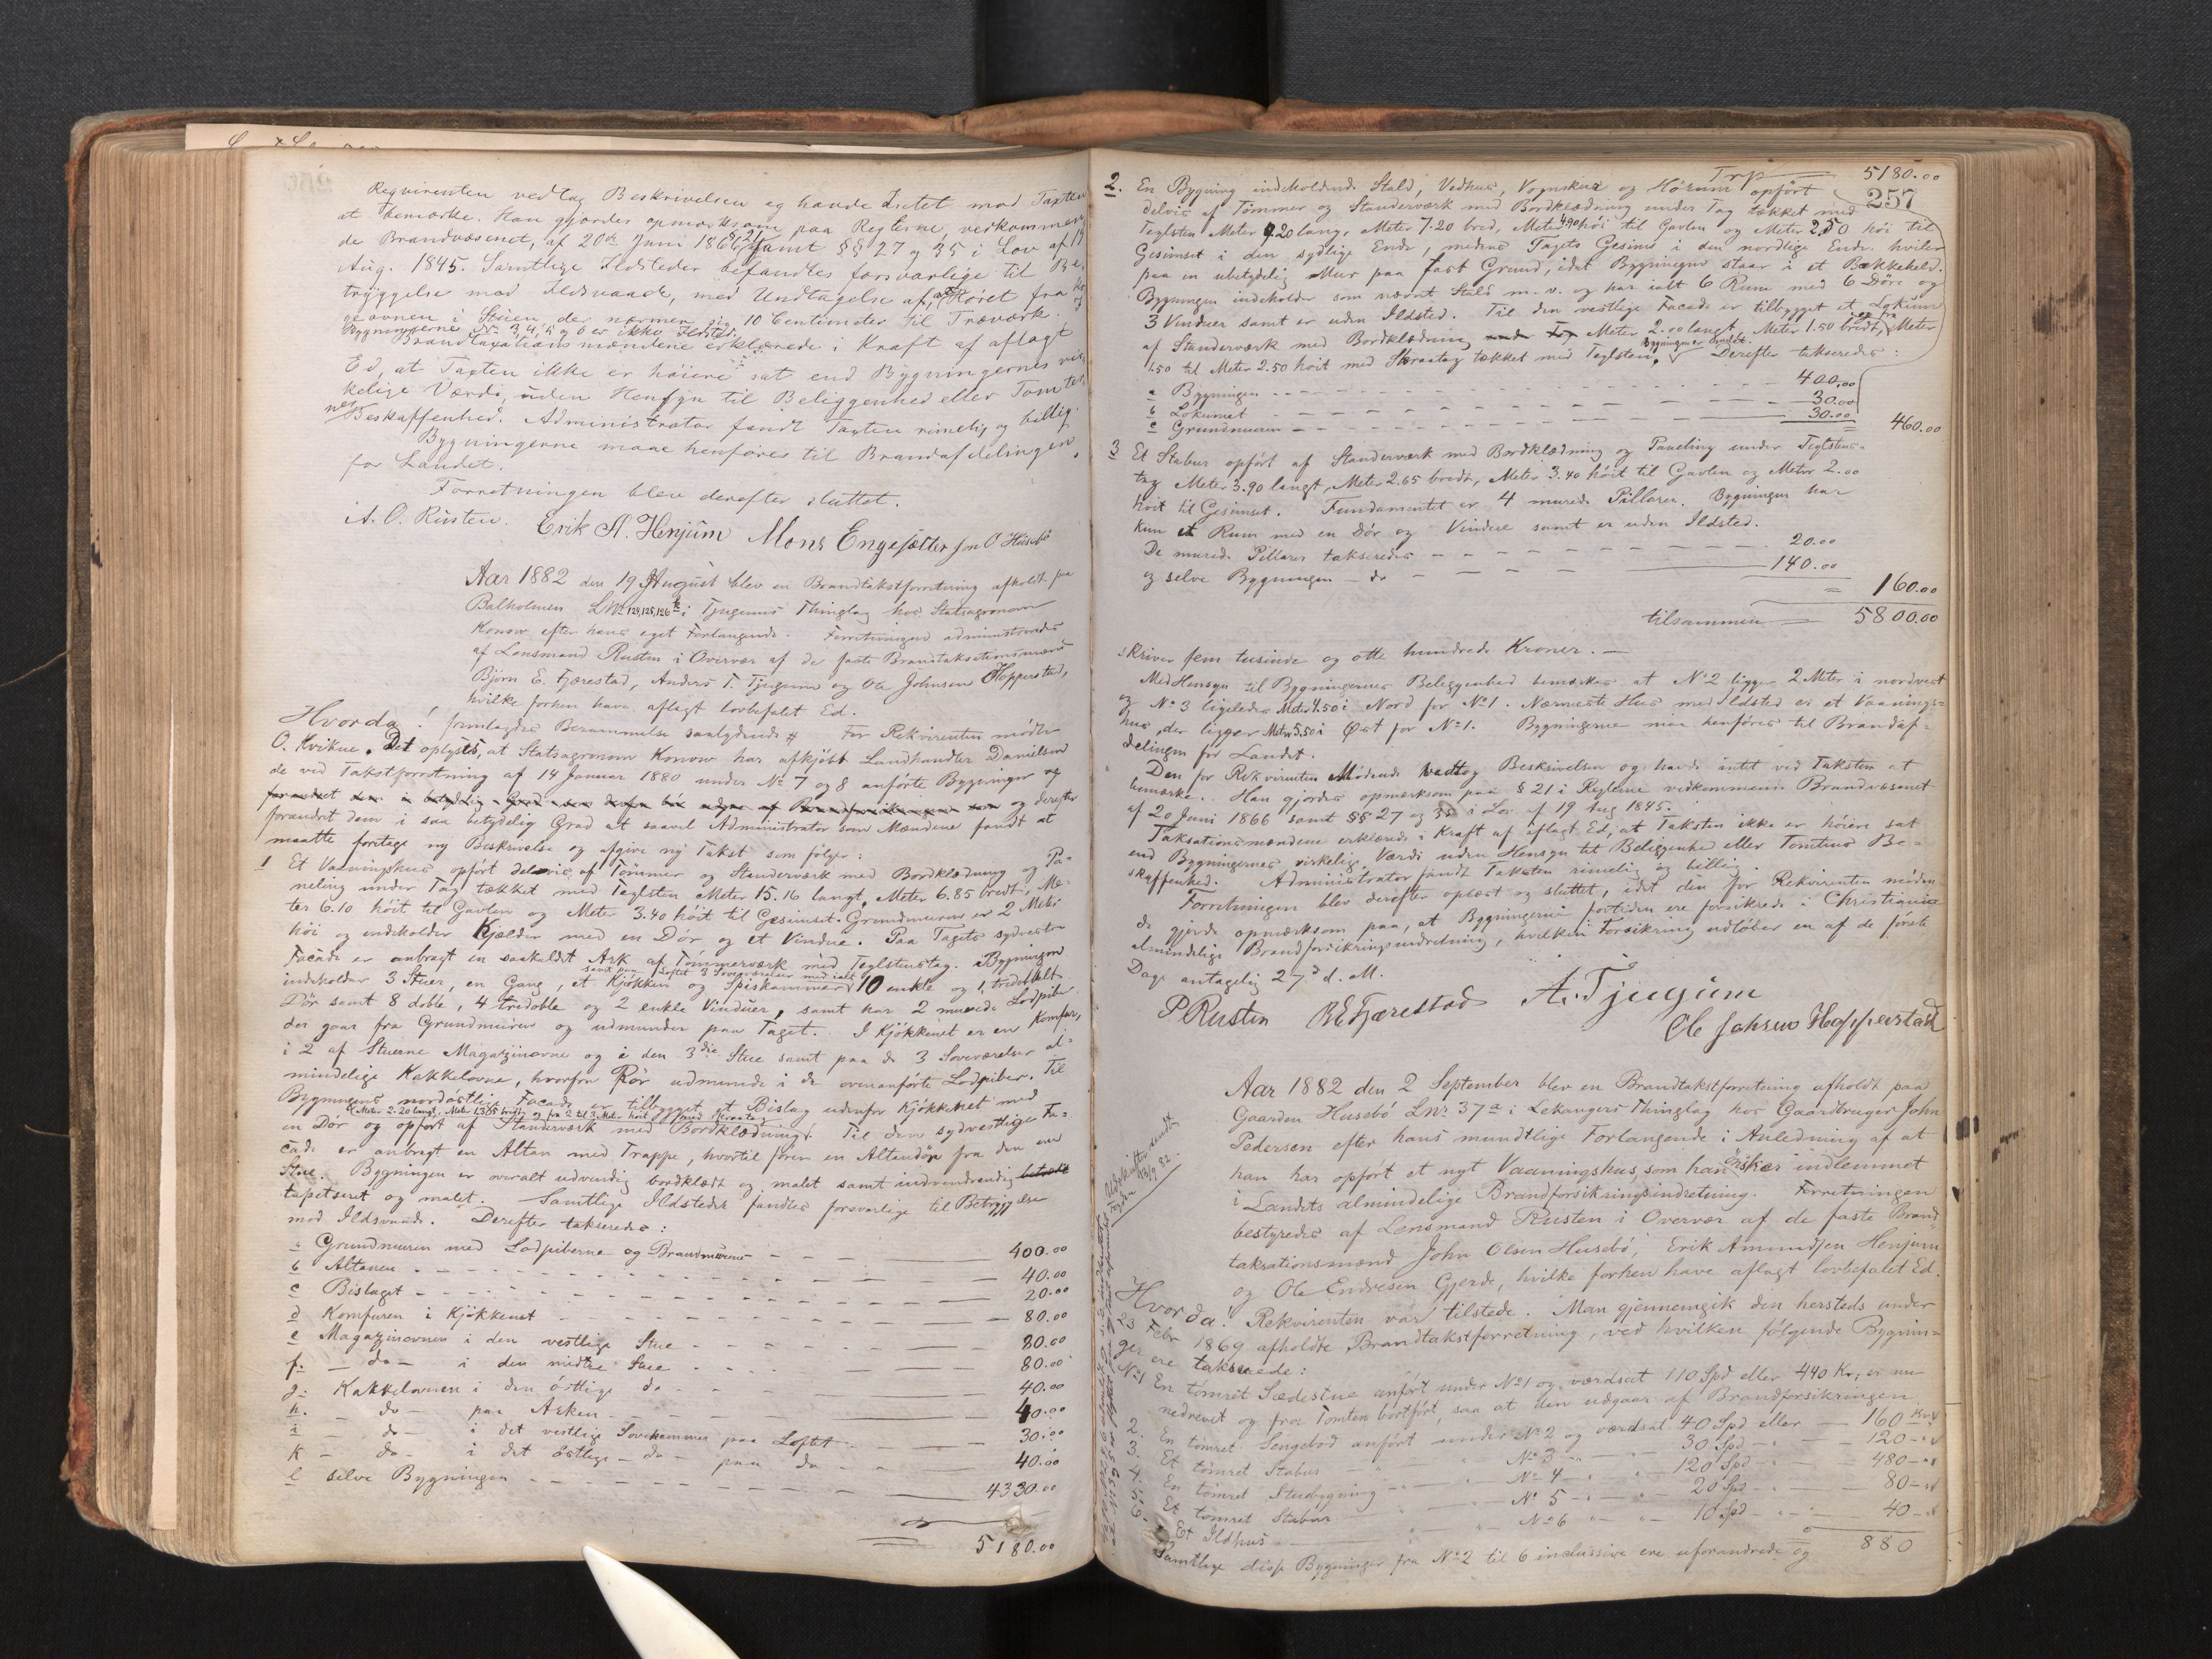 Requirenten vedtog Beskrivelsen og havde Intet mod Taxten
at bemærke. Han gjordes opmærksom paa Reglerne vedkommen
de Brandvæsenet, af 20de Juni 1866 § 21 samt §§ 27 og 35 i Lov af 19
Aug. 1845. Samtlige Ildsteder befandtes forsvarlige til Be-
tryggelse mod Ildsvaade, med Undtagelse af, at Röret fra
geovnen i Stuen der nærmer sig 10 Centimeter til Træværk.
Bygningerne No 3, 4, 5 og 6 er ikke Ildsted.
Brandtaxationsmændene erklærede i Kraft af aflagt
Ed, at Taxten ikke er höiere sat end Bygningernes vir-
kelige Værdi, uden Hensyn til Beliggenhed eller Tomter
nes Beskaffenhed. Administrator fandt Taxten rimelig og billig.
Bygningerne maae henföres til Brandafdelingen
for Landet.
Forretningen blev derefter sluttet.
A. O. Rusten. Erik A. Henjum Mons Engesætter Jon O Husebö
Aar 1882 den 19 August blev en Brandtakstforretning afholdt paa
Balholmen LNo 124,125,126 i Tjugums Thinglag hos Statsagronom
Konow efter hans eget Forlangende. Forretningen administreredes
af Lensmand Rusten i Overvær af de faste Brandtaksationsmænd
Björn E. Fjærestad, Anders T. Tjugum og Ole Johnsen Hopperstad,
hvilke forhen have aflagt lovbefalet Ed.
Hvorda! fremlagdes Berammelse saalydende # For Rekvirenten mödte
O. Kvikne. Det oplystes, at Statsagronom Konow har afkjöbt Landhandler Danielsen
de ved Takstforretning af 14 Januar 1880 under No 7 og 8 anförte Bygninger og
og derefter
forandret dem i saa betydelig Grad at saavel Administrator som Mændene fandt at
maatte foretage ny Beskrivelse og afgive ny Takst som fölger:
1 Et Vaaningshus opfört delvis af Tömmer og Standerværk med Bordklædning og Pa-
neling under Tag tækket med Teglsten Meter 15.16 langt, Meter 6.85 bredt, Me-
ter 6.10 höit til Gavlen og Meter 3.40 höit til Gesimset. Grundmuren er 2 Meter
höi og indeholder Kjælder med en Dör og et Vindue. Paa Tagets sydvestre
Facade er anbragt en saakaldet Ark af Tömmerværk med Teglstenstag. Bygningen
samt paa Loftet 3 Soveværelser med ialt
indeholder 3 Stuer, en Gang, et Kjökken og Spiskammer 10 enkle og 1 tredobbelt
Dör samt 8 doble, 4 tredoble og 2 enkle Vinduer, samt har 2 murede Lodpiber
der gaar fra Grundmuren og udmunder paa Taget. I Kjökkenet er en Komfur,
i 2 af Stuerne Magazinovne og i den 3die Stue samt paa de 3 Soveværelser al-
mindelige Kakkelovne, hvorfra Rör udmunde i de ovenanförte Lodpiber. Til
Bygningens nordöstlige Facade er tilbygget et Bislag udenfor Kjökkenet med
Meter 2.20 langt, Meter 1.35 bredt og fra 2 til 3 Meter höit med Skraatag
en Dör og opfört af Standerværk med Bordklædning. Til den sydvestlige Fa-
cade er anbragt en Altan med Trappe, hvortil förer en Altandör fra den ene
Stue. Bygningen er overalt udvendig bordklædt og malet samt indvendvendig
tapetseret og malet. Samtlige Ildsteder fandtes forsvarlige til Betryggelse
mod Ildsvaade. Derefter takseredes:
a Grundmuren med Lodpiberne og Brandmurene 400.00
b Altanen 40.00
c Bislaget 20.00
d Komfuren i Kjökkenet 80.00
e Magazinovnen i den vestlige Stue 80.00
f. do i den midtre Stue 80.00
g. Kakkelovnen i den östlige do 40.00
h. do paa Arken 40.00
i do i det vestlige Sovekammer paa Loftet 30.00
k do i det östlige do paa do 40.00
l selve Bygningen 4330.00
5180.00
Trp 5180.00
257
2. En Bygning indeholdende Stald, Vedhus, Vognskur og Hörum opfört
delvis af Tömmer og Standerværk med Bordklædning under Tag tækket med
Teglsten Meter 9.20 lang, Meter 7.20 bred, Meter 4.90 höi til Gavlen og Meter 2.50 höi til
Gesimset i den sydlige Ende, medens Tagets Gesims i den nordlige Ende hviler
paa en ubetydelig Mur paa fast Grund, idet Bygningen staar i et Bækkeheld.
Bygningen indeholder som nævnt Stald m. v. og har ialt 6 Rum med 6 Döre og
3 Vinduer samt er uden Ildsted. Til den vestlige Facade er tilbygget et Lokum
af Standerværk med Bordklædning Meter 2.00 langt, Meter 1.50 bredt, og fra Meter
1.50 til Meter 2.50 höit med Skraatag tækket med Teglsten. Bygningen er malet. Derefter takseredes:
a Bygningen 400.00
b Lokumet 30.00
c Grundmuren 30.00
= 460.00
3 Et Stabur opfört af Standerværk med Bordklædning og Paneling under Teglstens-
tag Meter 3.90 langt, Meter 2.65 bredt, Meter 3.40 höit til Gavlen og Meter 2.00
höit til Gesimset. Fundamentet er 4 murede Pillarer. Bygningen har
kun et Rum med en Dör og Vindue samt er uden Ildsted.
De murede Pillarer takseredes 20.00
og selve Bygningen do 140.00
= 160.00
tilsammen 5800.00
skriver fem tusinde og otte hundrede Kroner.
Med Hensyn til Bygningernes Beliggenhed bemærkes at No 2 ligger 2 Meter i nordvest
og No 3 ligeledes Meter 4.50 i Nord for No 1. Nærmeste Hus med Ildsted er et Vaanings-
hus, der ligger Meter 5.50 i Øst for No 1. Bygningerne maa henföres til Brandaf-
delingen for Landet.
Den for Rekvirenten Mödende vedtog Beskrivelsen og havde intet ved Taksten at
bemærke. Han gjordes opmærksom paa § 21 i Reglerne vedkommende Brandvæsenet
af 20 Juni 1866 samt §§ 27 og 35 i Lov af 19 Aug 1845.
Taksationsmændene erklærede i Kraft af aflagt Ed, at Taksten ikke er höiere sat
end Bygningernes virkelige Værdi uden Hensyn til Beliggenhed eller Tomtens Be-
skaffenhed. Administrator fandt Taksten rimelig og billig.
Forretningen blev derefter oplæst og sluttet, idet den for Rekvirenten möden-
de gjorde opmærksom paa, at Bygningerne fortiden ere forsikrede i Christiania
almindelige Brandforsikringsindretning, hvilken Forsikring udlöber en af de förste
Dage antagelig 27de d. M.
P Rusten B E Fjærestad A. Tjugum
Ole Johsen Hopperstad
Aar 1882 den 2 September blev en Brandtakstforretning afholdt paa
Gaarden Husebö LNr 37a i Lekangers Thinglag hos Gaardbruger John
Pedersen efter hans mundtlige Forlangende i Anledning af at
han har opfört et nyt Vaaningshus, som han önsker indlemmet
i Landets almindelige Brandforsikringsindretning. Forretningen
bestyredes af Lensmand Rusten i Overvær af de faste Brand-
taksationsmænd John Olsen Husebö, Erik Amundsen Henjum
og Ole Endresen Gjerde, hvilke forhen have aflagt lovbefalet Ed.
Udskrift sendt
Fogden 13/9 82.
Hvorda! Rekvirenten var tilstede. Man gjennemgik den hersteds under
23 Febr 1869 afholdte Brandtakstforretning, ved hvilken fölgende Bygnin-
ger ere takserede:
No 1 En tömret Sædestue anfört under No 1 og værdsat 110 Spd eller 440 Kr, er nu
nedrevet og fra Tomten bortfört, saa at den udgaar af Brandforsikringen
2. En tömret Sengebod anfört under No 2 og værdsat 40 Spd eller 160 Kr
3. Et tömret Stabur No 3 30 Spd 120
4. En tömret Stuebygning No 4 120 Spd 480
5. Et tömret Stabur No 5 20 Spd 80
6. Et Ildhus No 6 10 Spd 40
880
Samtlige disse Bygninger fra No 2 til 6 inclusive ere uforandrede og